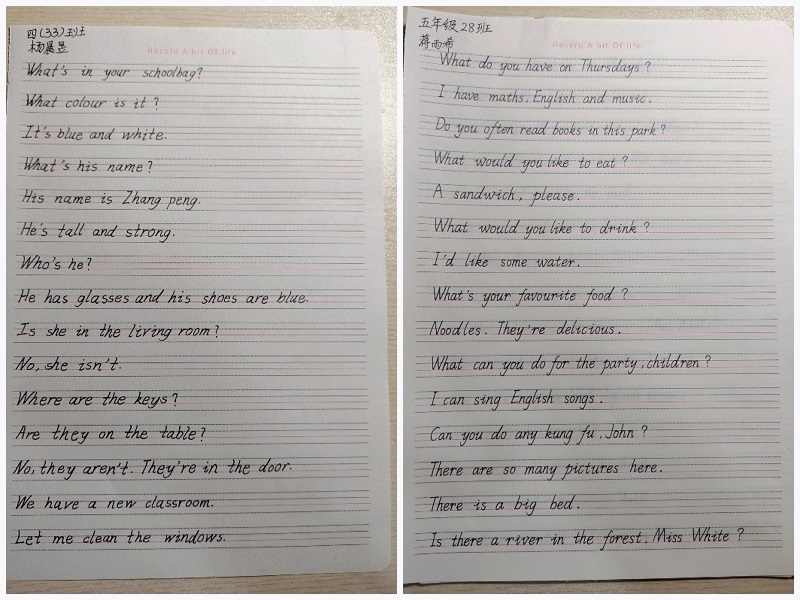 四(33)班
杨晨昱
Record A bit Of life
What's in your schoolbag?
What colour is it?
It's blue and white.
What's his name?
His name is Zhang peng.
He's tall and strong.
Who's he?
He has glasses and his shoes are blue.
Is she in the living room?
No, she isn't.
Where are the keys?
Are they on the table?
No, they aren't. They're in the door.
We have a new classroom.
Let me clean the windows.
五年级28班
蒋雨希
Record A bit Of life
What do you have on Thursdays?
I have maths, English and music.
Do you often read books in this park?
What would you like to eat?
A sandwich, please.
What would you like to drink?
I'd like some water.
What's your favourite food?
Noodles. They're delicious.
What can you do for the party, children?
I can sing English songs.
Can you do any kung fu, John?
There are so many pictures here.
There is a big bed.
Is there a river in the forest, Miss White?